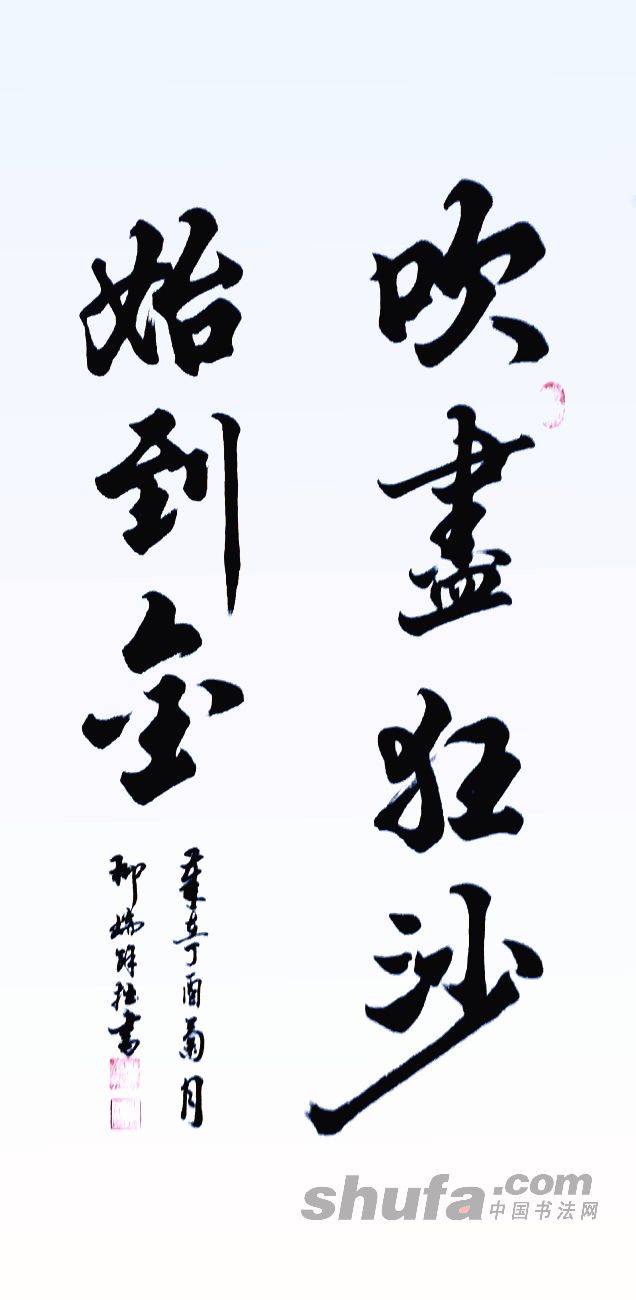 吹盡狂沙
始到金
歲在丁酉菊月
柳瑞
拙書
shufa.com
中国书法网